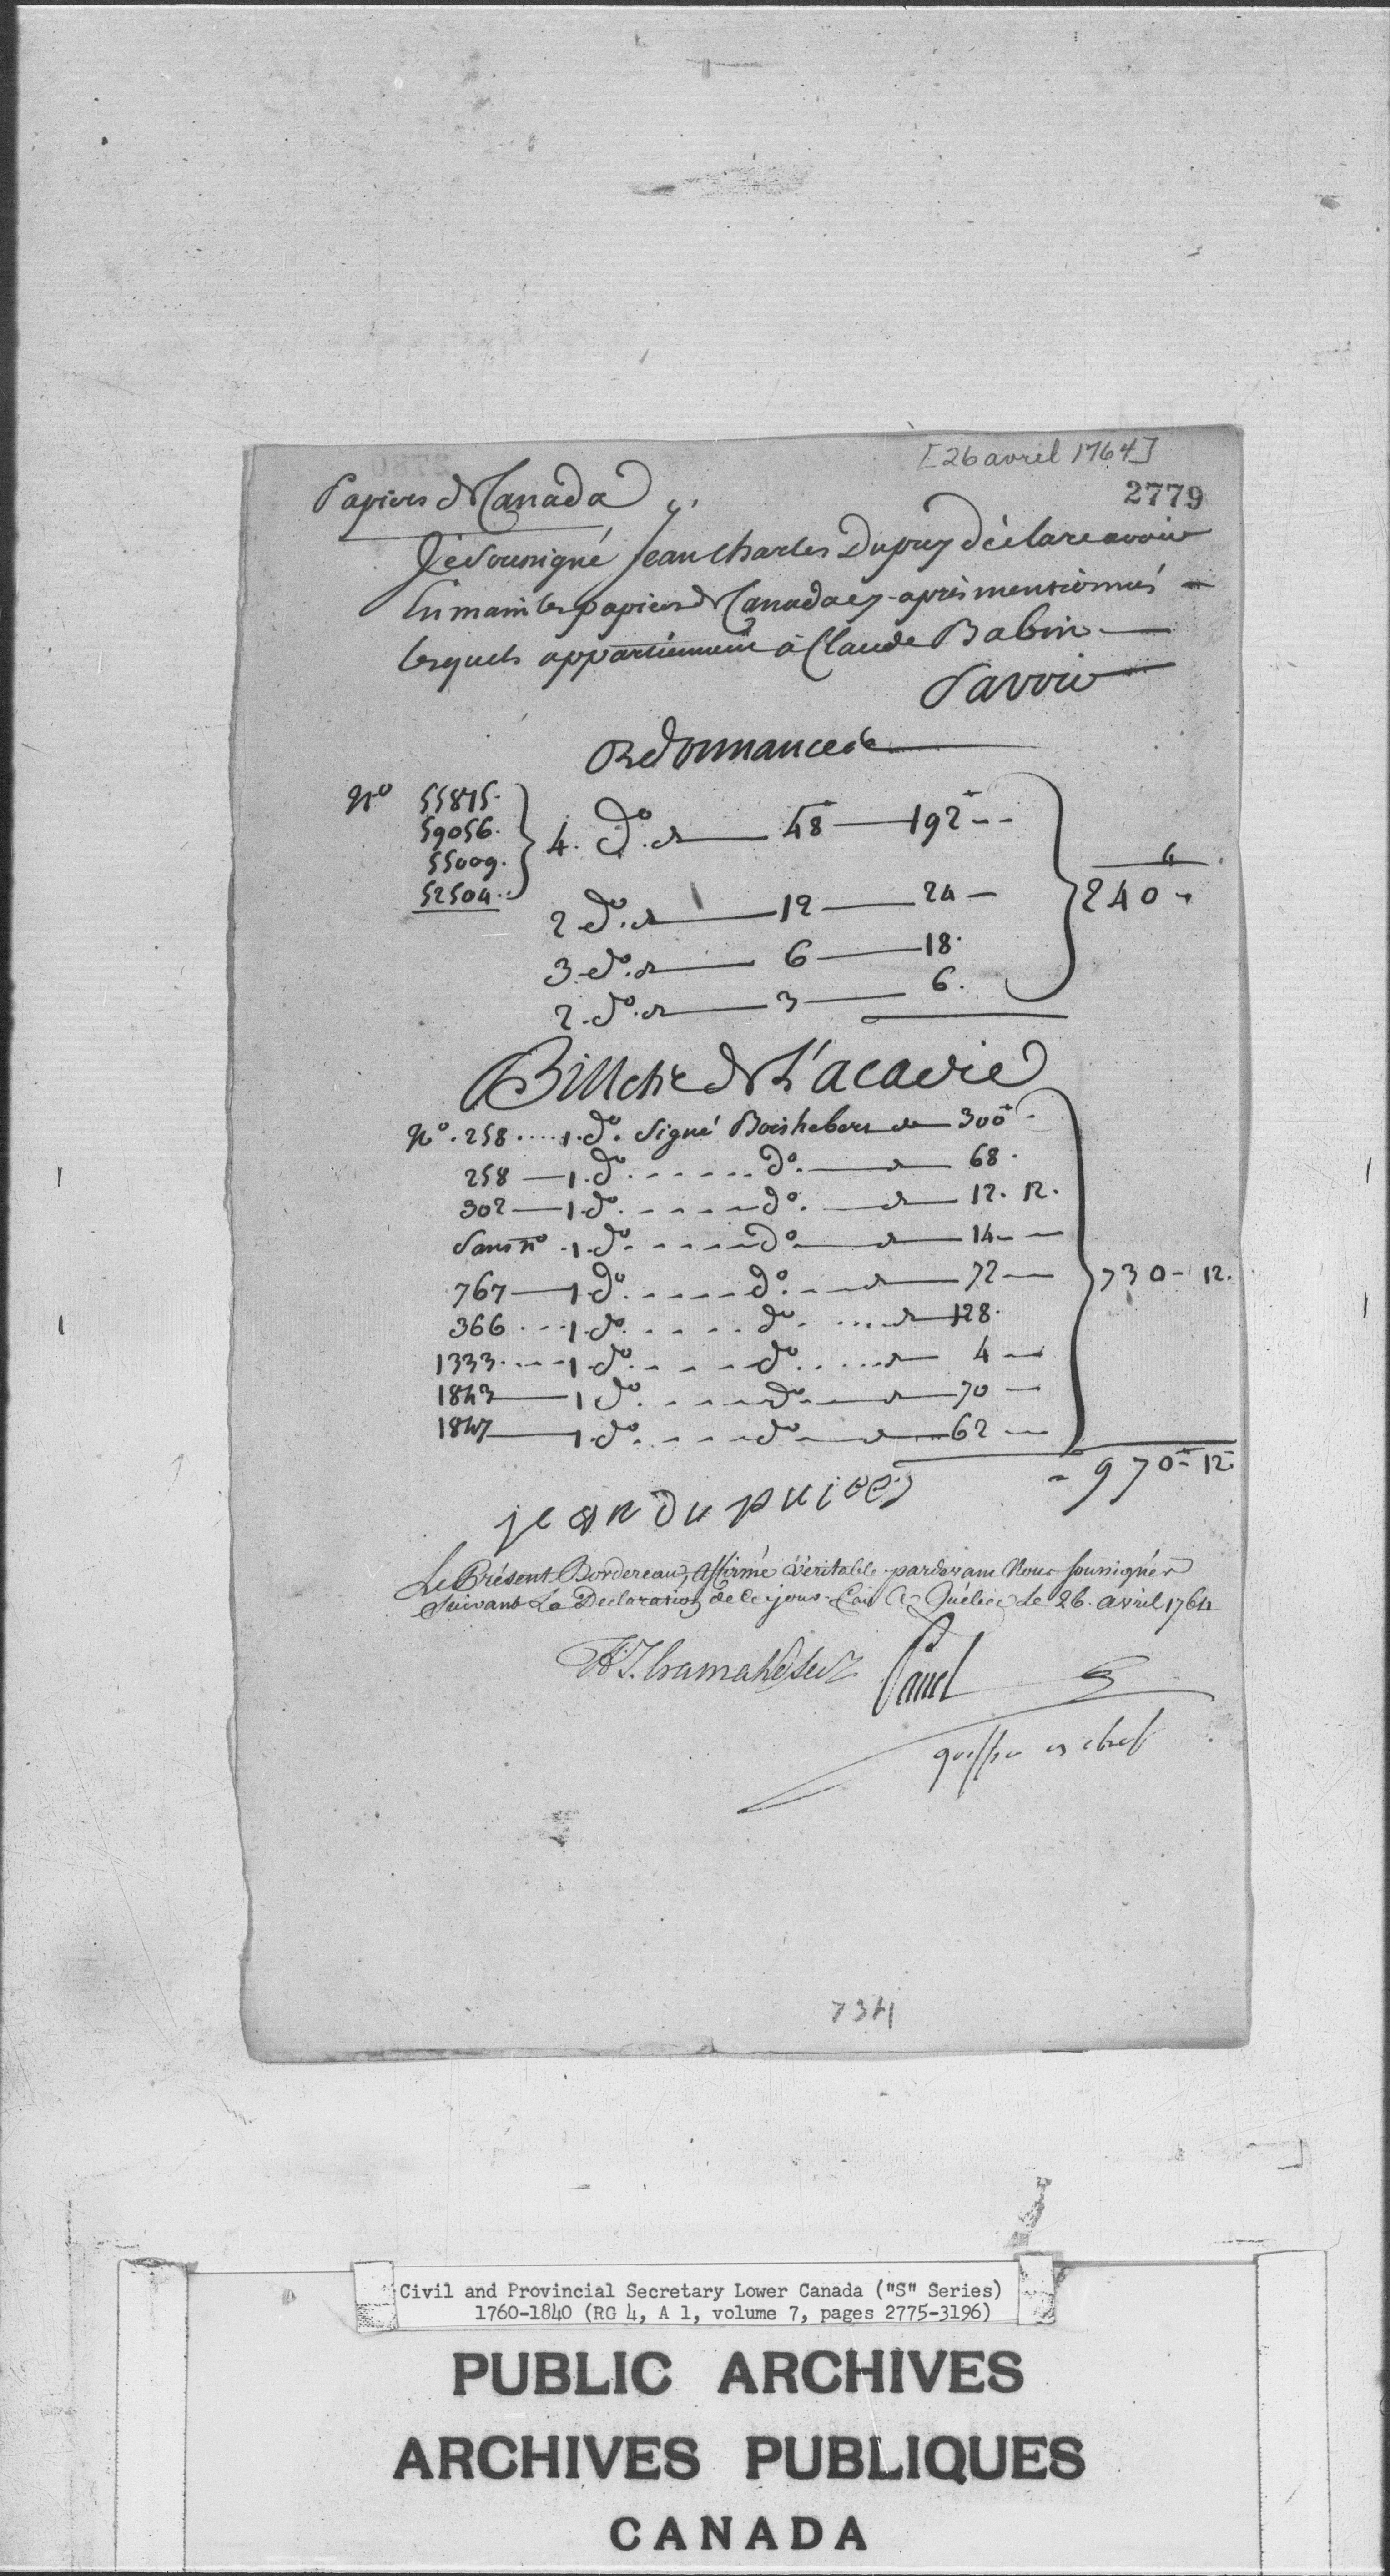 [26 avril 1764]
2779
Papiers de Canada
Je soussigné Jean Charles Dupuy déclare avoir
En main les papiers de Canada cy-après mentionnés
lesquels appartiennent à Claude Babin
Savoir
Ordonnances
No 55875.
59056.
55009.
52504.
4. do. de 48 192
2 do. de 12 24
3. do. de 6 18.
2. do. de 3 6.
240
Billets de L'acadie
No. 258 .... 1. do. Signé Boishebert de 300
258 1. do ...... do. de 68.
302 1 do. do. de 12. 12.
Sans no 1. do. do de 14
767 1 do. do. de 72
366 1. do. do. de 128.
1333 1 do. do. de 4
1843 1 do. do. de 70
1847 1. do. do de 62
730 - 12.
970 - 12
jean dupuiees
Le Présent Bordereau, Affirmé Véritable pardevant Nous soussignés
suivant La Declaration de Ce jour. A Québec Le 26. avril 1764
H. T. Cramahé Secr
Panet
greffier en chef
734
Civil and Provincial Secretary Lower Canada ("S" Series)
1760-1840 (RG 4, A 1, volume 7, pages 2775-3196)
PUBLIC ARCHIVES
ARCHIVES PUBLIQUES
CANADA